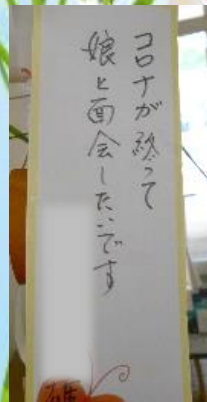 コロナが終って
娘と面会したいです